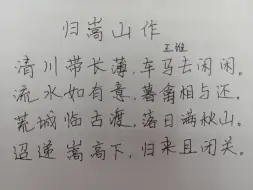 归嵩山作
王维
清川带长薄，车马去闲闲。
流水如有意，暮禽相与还。
荒城临古渡，落日满秋山。
迢递嵩高下，归来且闭关。